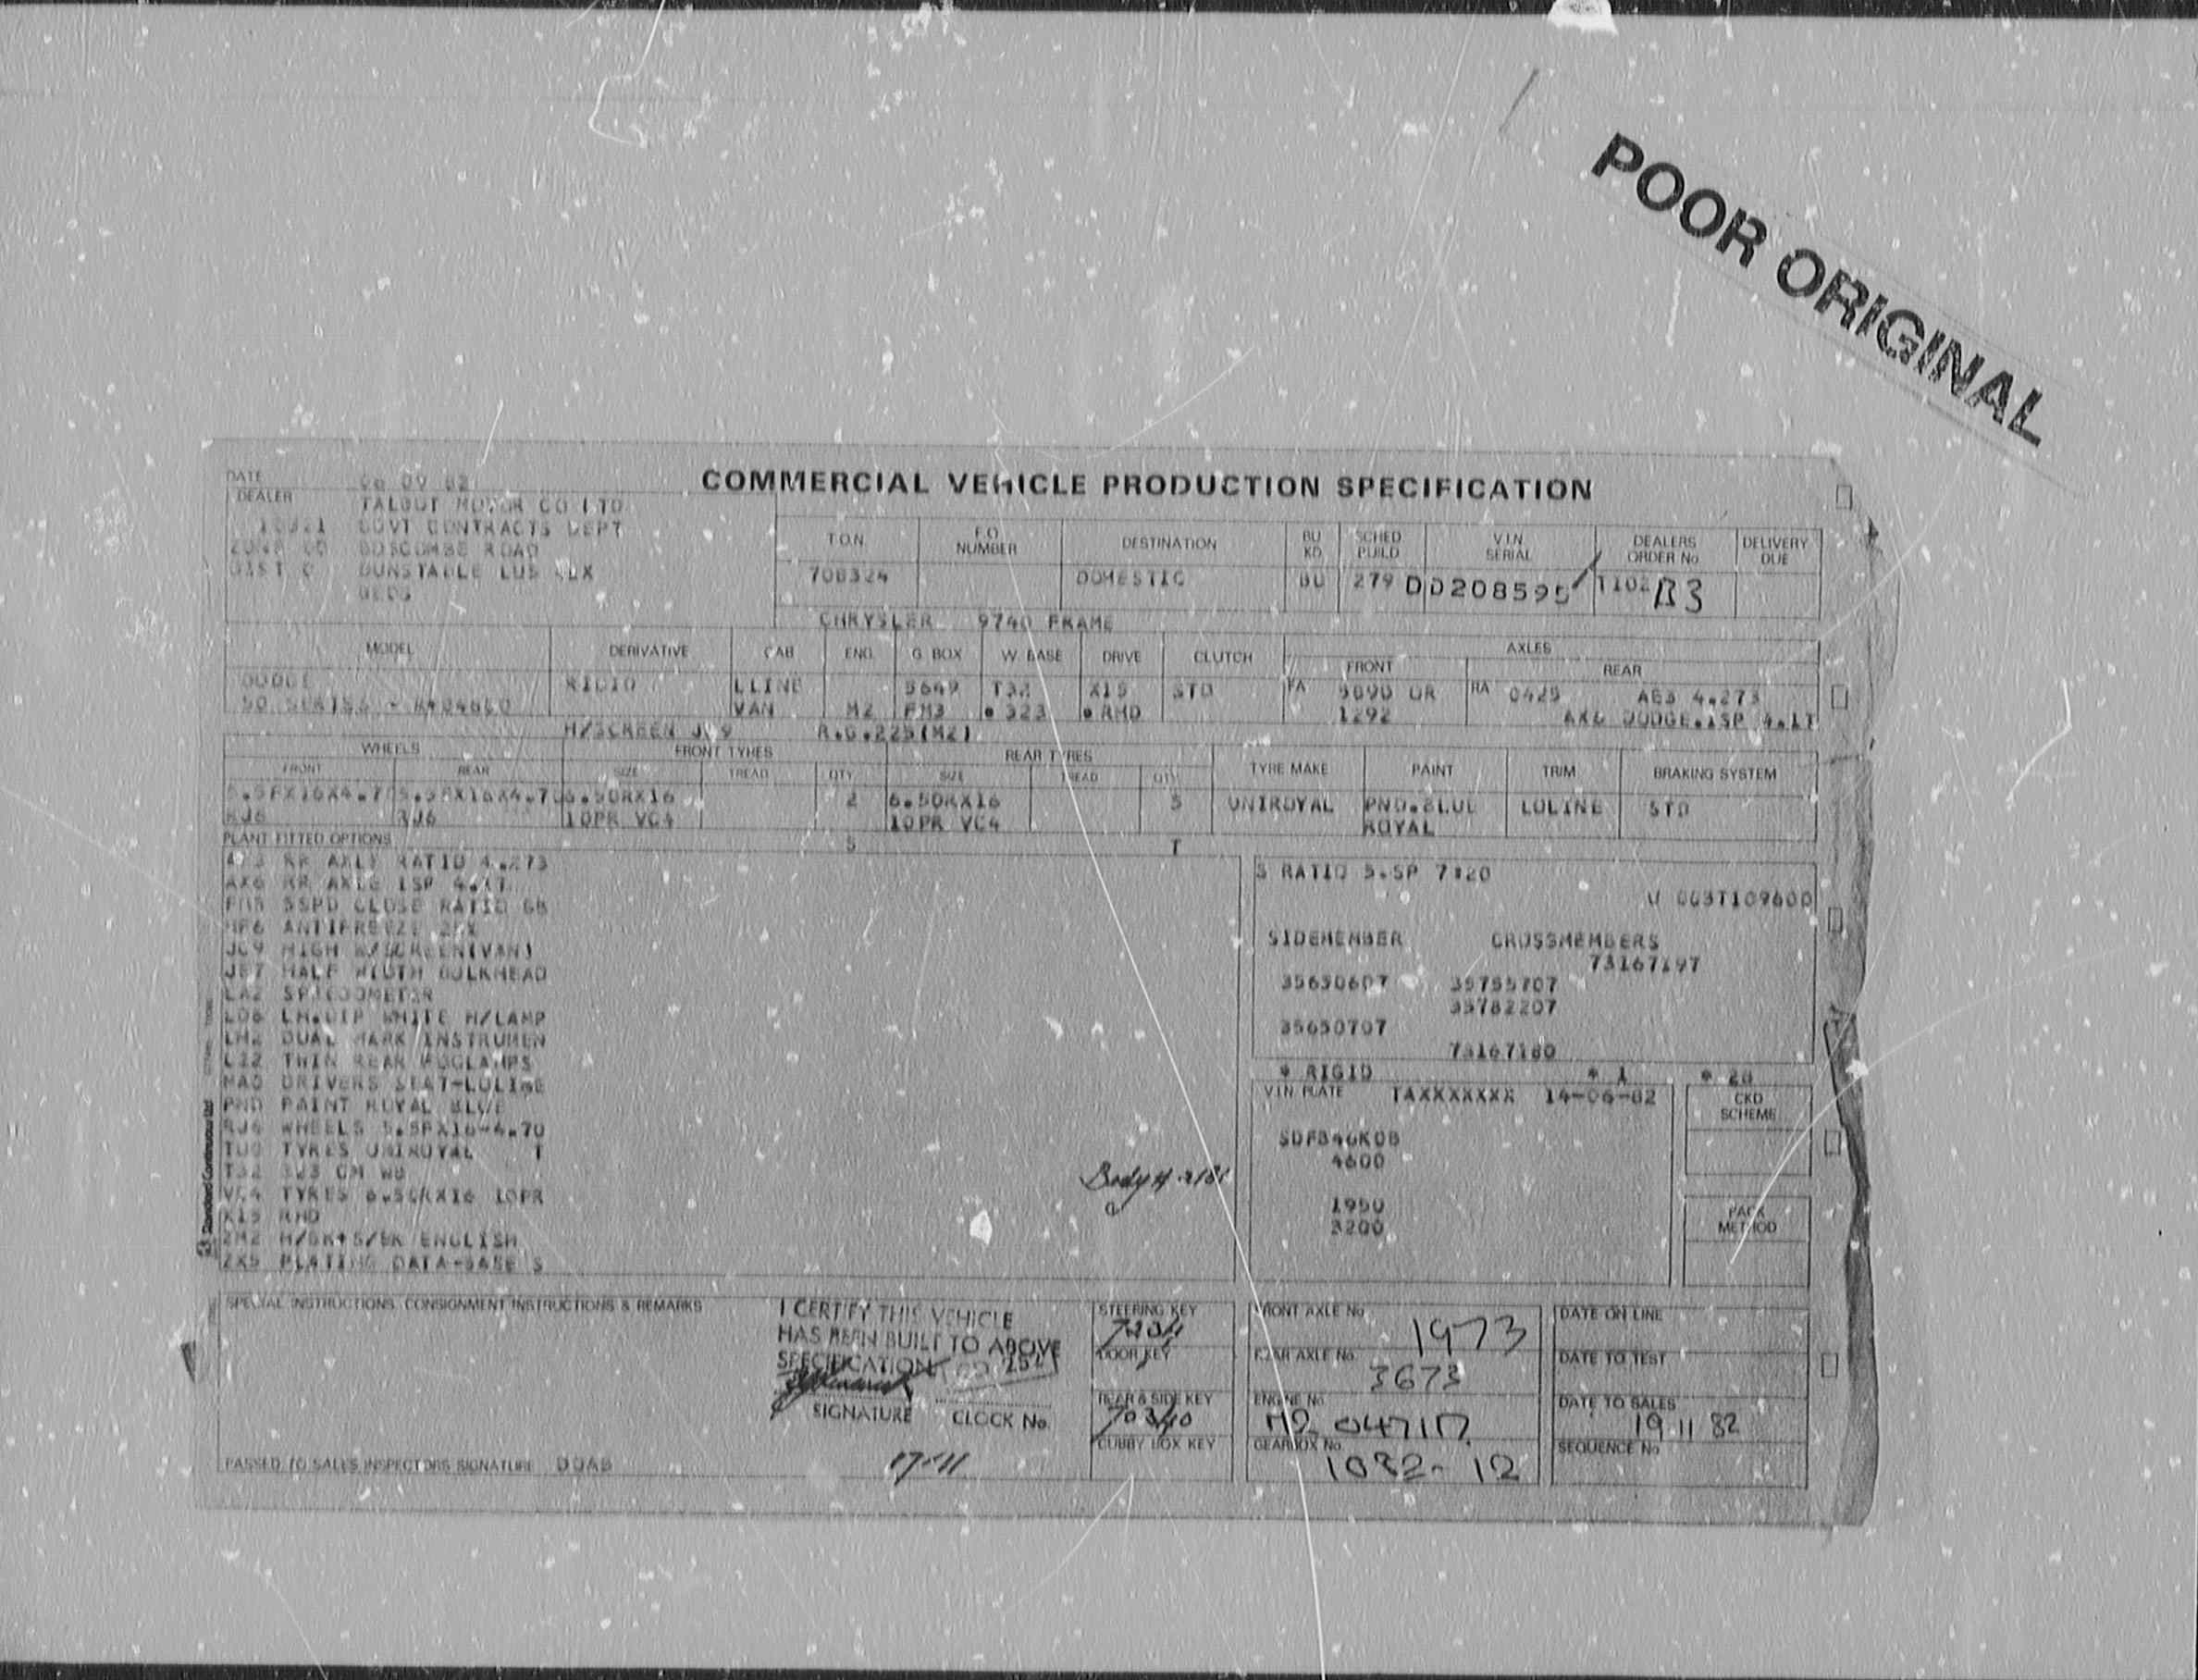 POOR ORIGINAL
COMMERCIAL VEHICLE PRODUCTION SPECIFICATION
DATE 82
DEALER TALBOT MOTOR CO LTD
GOVT CONTRACTS DEPT
BOSCOMBE ROAD
DUNSTABLE
BEDS
T.O.N. F.O. NUMBER DESTINATION BU KD SCHED BUILD V.I.N. SERIAL DEALERS ORDER No DELIVERY DUE
708324 DOMESTIC BU 279 DD208595 1102 B3
CHRYSLER 9740 FRAME
MODEL DERIVATIVE CAB ENG. G. BOX W. BASE DRIVE CLUTCH AXLES
FRONT REAR
DODGE LLINE 5649 T32 X15 STD FA 5090 OR RA 0425 AE3 4.273
50 SERIES VAN M2 FM3 • 323 • RHD 1292 AX6 DODGE.1SP 4.1T
H/SCREEN JC9 R.G.225(M2)
WHEELS FRONT TYRES REAR TYRES TYRE MAKE PAINT TRIM BRAKING SYSTEM
FRONT REAR SIZE TREAD QTY SIZE TREAD QTY
5.5FX16X4.7 5.5FX16X4.70 6.50RX16 2 6.50RX16 5 UNIROYAL PND.BLUE LOLINE STD
RJ6 RJ6 10PR VC4 10PR VC4 ROYAL
PLANT FITTED OPTIONS S T
RR AXLE RATIO 4.273
AX6 RR AXLE 1SP 4.1T
5SPD CLOSE RATIO GB
ANTIFREEZE
JC9 HIGH W/SCREEN(VAN)
HALF WIDTH BULKHEAD
LA2 SPEEDOMETER
LD6 LH.DIP WHITE H/LAMP
LH2 DUAL MARK INSTRUMEN
L22 TWIN REAR FOGLAMPS
DRIVERS SEAT-LOLINE
PND PAINT ROYAL BLUE
RJ6 WHEELS 5.5FX16-4.70
TU0 TYRES UNIROYAL T
T32 323 CM WB
VC4 TYRES 6.50RX16 10PR
X15 RHD
ZM2 H/BK+S/BK ENGLISH
ZX5 PLATING DATA-BASE S
S RATIO 5.SP 7:20
U 003T109600
SIDEMEMBER CROSSMEMBERS
73167197
35650607 35755707
35782207
35650707
73167180
* RIGID * 1 * 20
VIN PLATE TAXXXXXXX 14-06-82
CKD SCHEME
SDFB46K0B
4600
1950
3200
PACK METHOD
SPECIAL INSTRUCTIONS CONSIGNMENT INSTRUCTIONS & REMARKS
I CERTIFY THIS VEHICLE
HAS BEEN BUILT TO ABOVE
SPECIFICATION
SIGNATURE CLOCK No.
17-11
PASSED TO SALES INSPECTORS SIGNATURE
STEERING KEY
DOOR KEY
REAR & SIDE KEY
CUBBY BOX KEY
FRONT AXLE No. 1973
REAR AXLE No. 3673
ENGINE No.
GEARBOX No. 1032-12
DATE ON LINE
DATE TO TEST
DATE TO SALES 19 11 82
SEQUENCE No